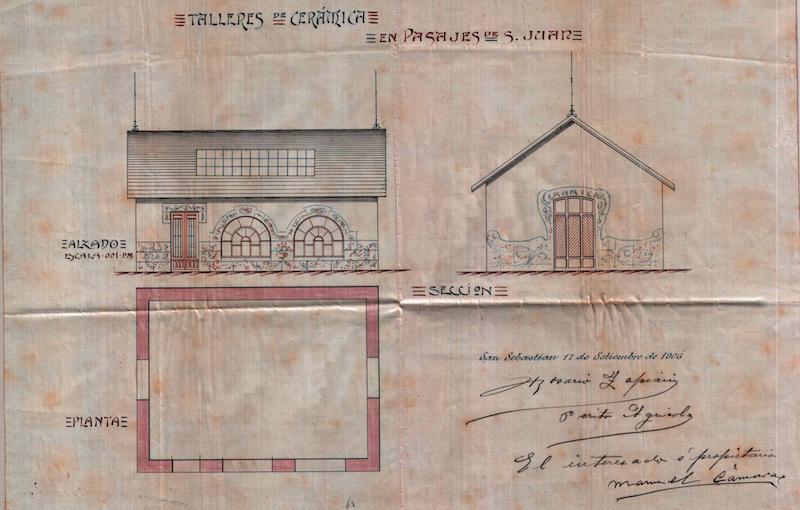 TALLERES DE CERÁMICA
EN PASAJES DE S. JUAN
ALZADO
ESCALA · 0'01 · P.M.
SECCION
PLANTA
San Sebastian 17 de Setiembre de 1906
Perito Agricola
El interesado ó propietario
Manuel Cámara